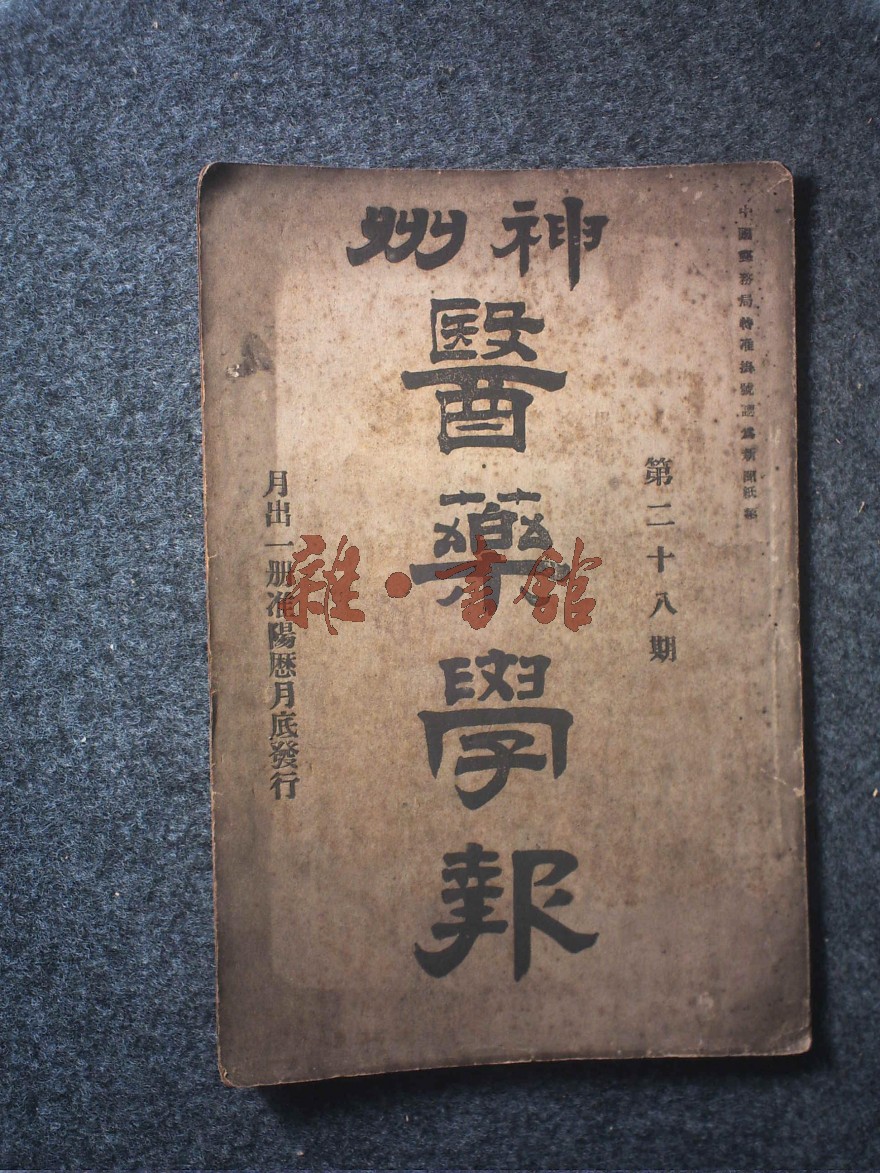 中國郵務局特准掛號認爲新聞紙類
第二十八期
神州
醫藥學報
月出一册准陽曆月底發行
雜·書館